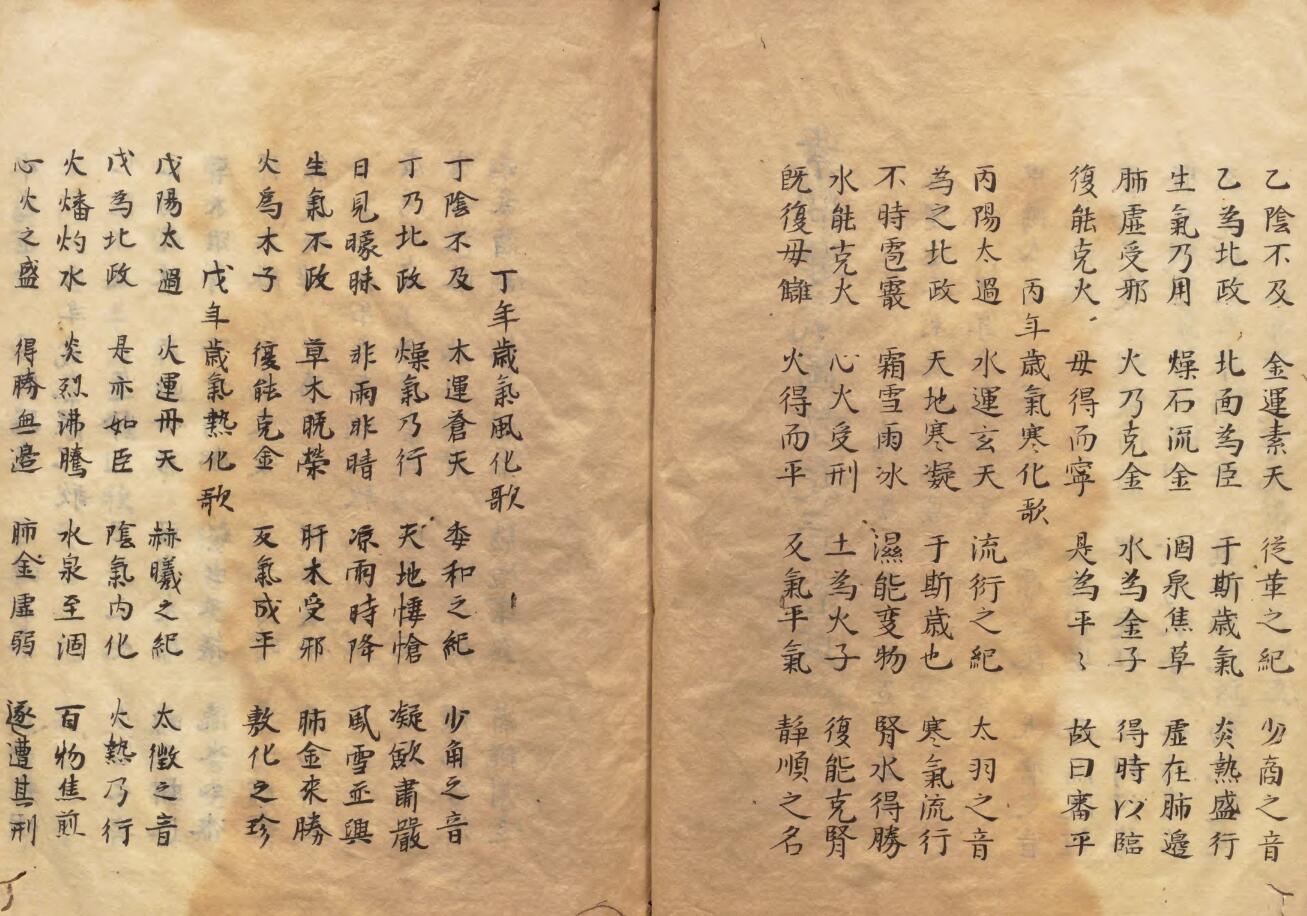 乙陰不及　金運素天　從革之紀　少商之音
乙為北政　北面為臣　于斯歲氣　炎熱盛行
生氣乃用　燥石流金　涸泉焦草　虛在肺邊
肺虛受邪　火乃克金　水為金子　得時以臨
復能克火　母得而寧　是為平〻　故曰審平
丙年歲氣寒化歌
丙陽太過　水運玄天　流衍之紀　太羽之音
為之北政　天地寒凝　于斯歲也　寒氣流行
不時雹霰　霜雪雨冰　濕能变物　腎水得勝
水能克火　心火受刑　土為火子　復能克腎
既復母讎　火得而平　及氣平氣　靜順之名
丁年歲氣風化歌
丁陰不及　木運蒼天　委和之紀　少角之音
丁乃北政　燥氣乃行　天地悽愴　凝歛肅嚴
日見曚昧　非雨非晴　凉雨時降　風雪並興
生氣不政　草木晩榮　肝木受邪　肺金來勝
火爲木子　復能克金　反氣成平　敷化之珍
戊年歲氣熱化歌
戊陽太過　火運丹天　赫曦之紀　太徵之音
戊為北政　是亦如臣　陰氣内化　火熱乃行
火燔灼水　炎烈沸騰　水泉至涸　百物焦煎
心火之盛　得勝無邉　肺金虛弱　逐遭其刑